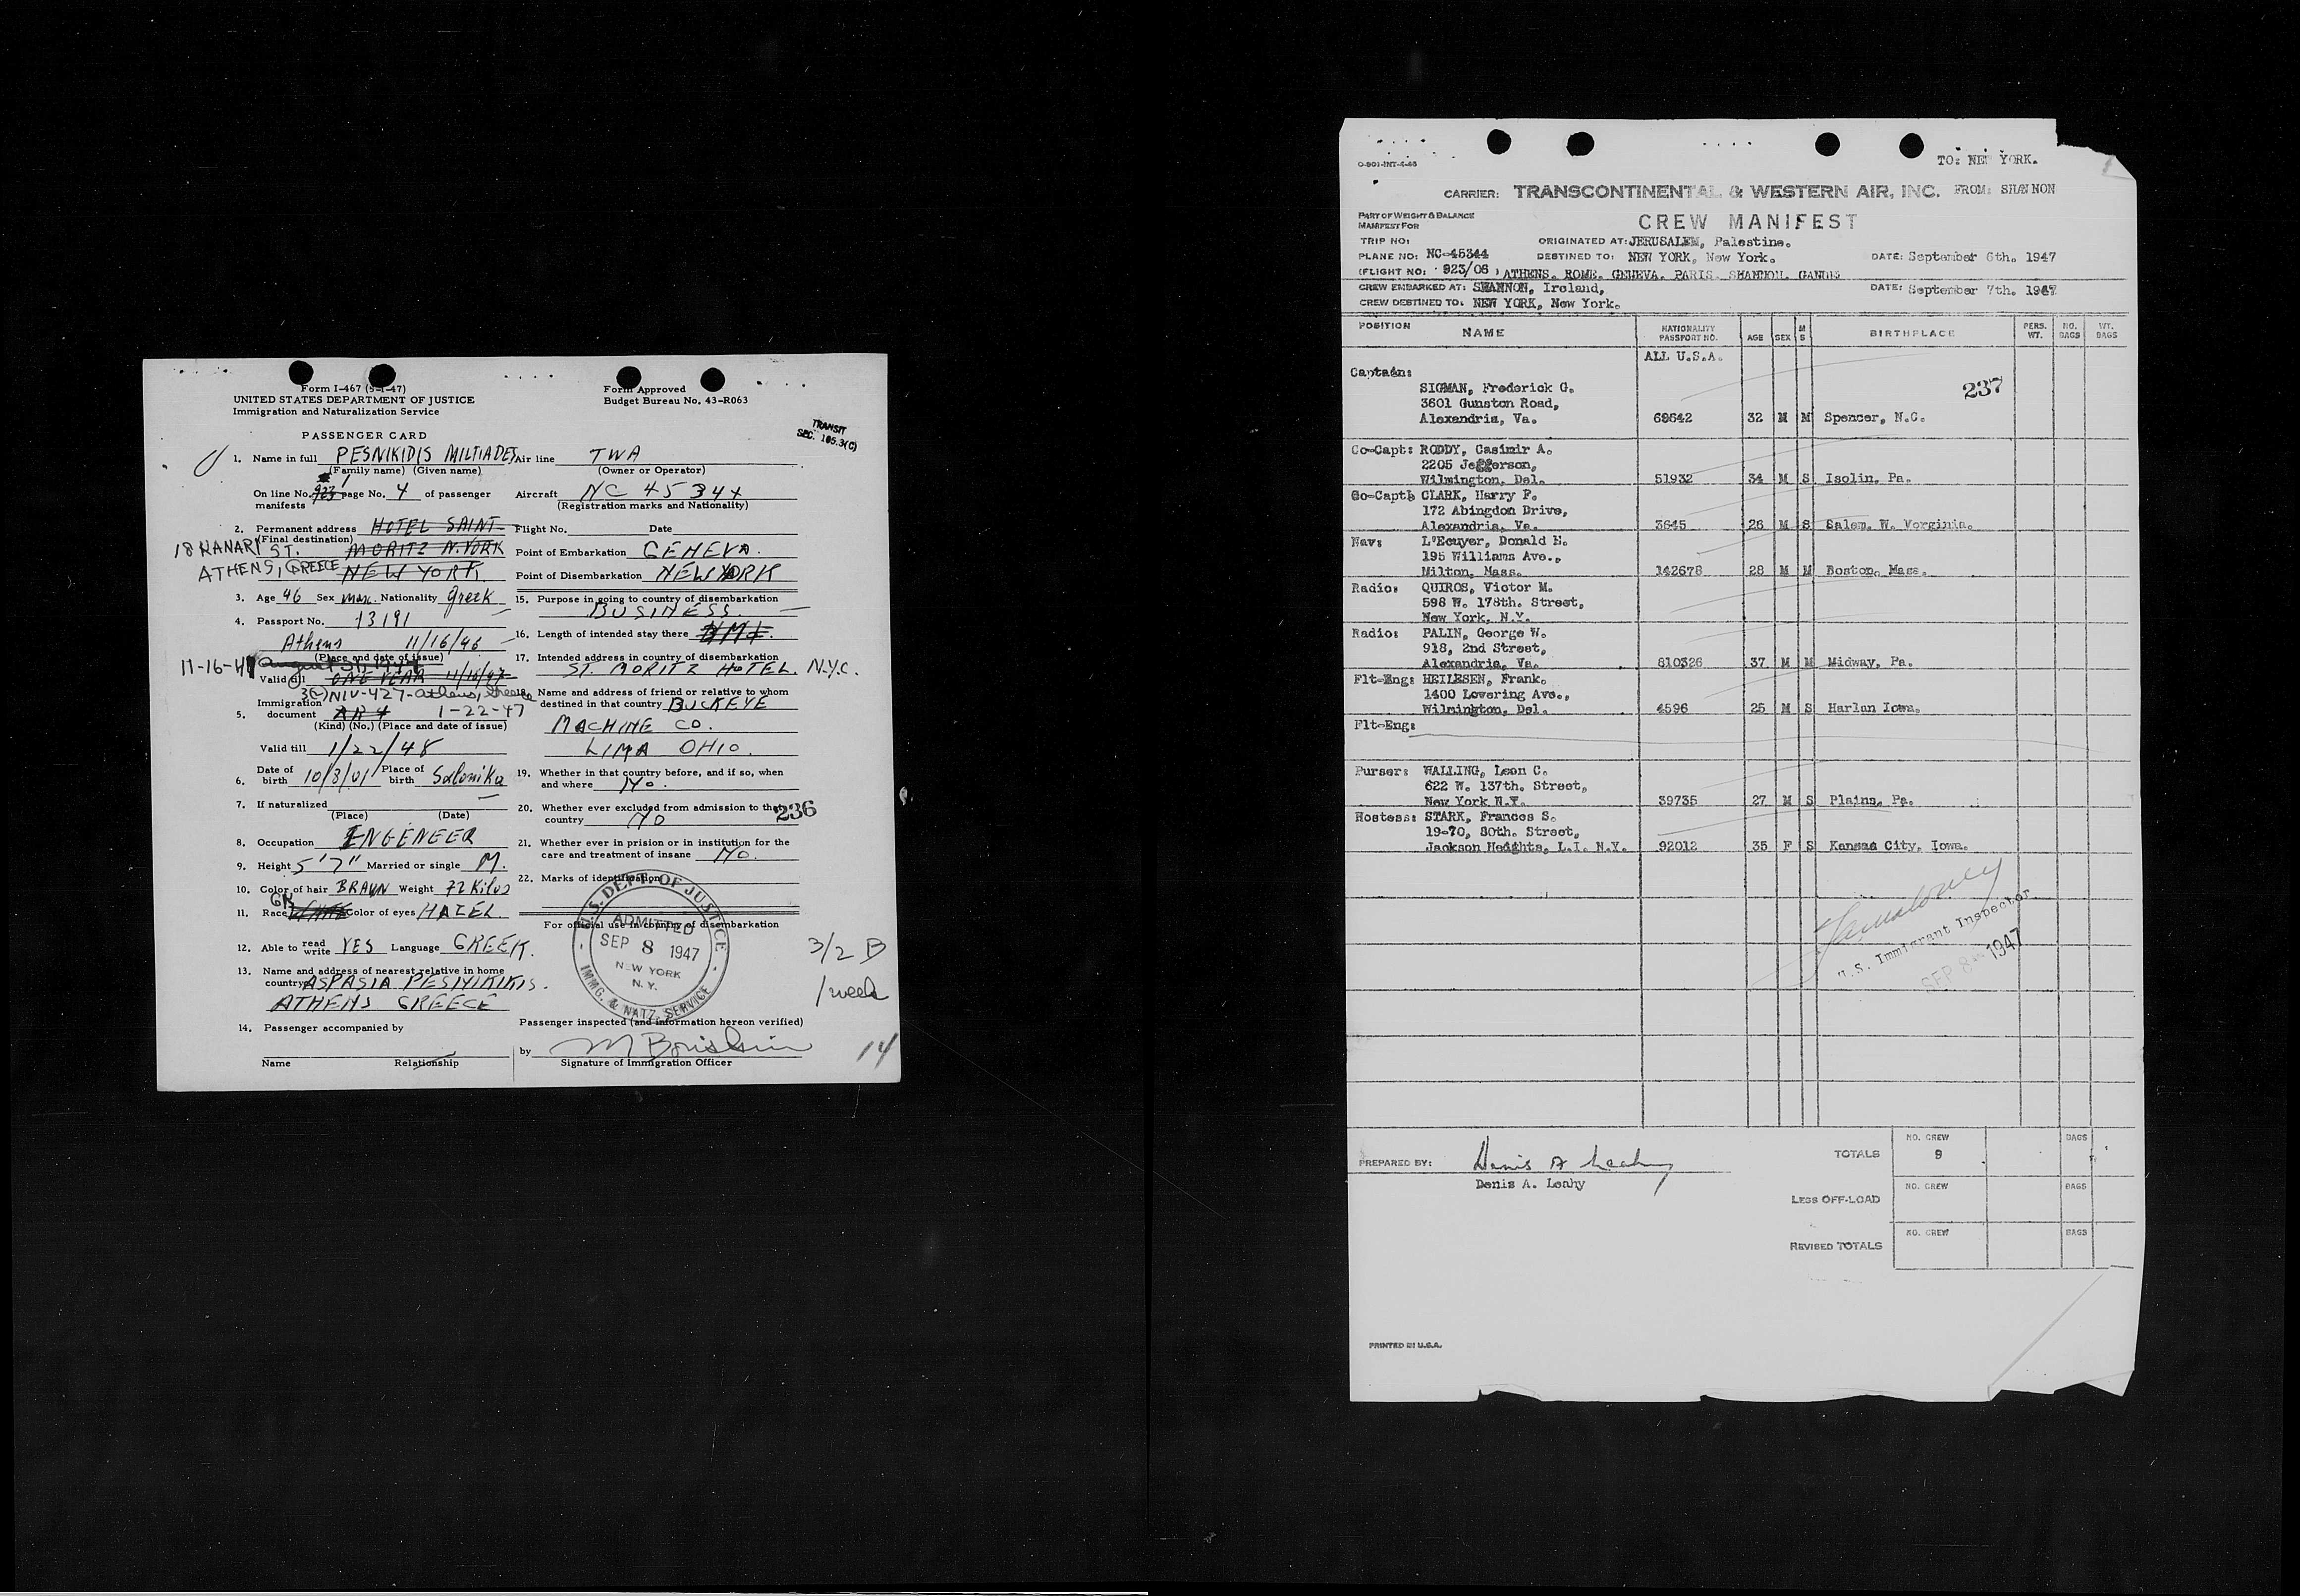 Form I-467 (5-1-47)
UNITED STATES DEPARTMENT OF JUSTICE
Immigration and Naturalization Service
Form Approved
Budget Bureau No. 43-R063
TRANSIT
SEC. 165.3(C)
PASSENGER CARD
1. Name in full PESNIKIDIS MILTIADES
(Family name) (Given name)
On line No. 1 page No. 4 of passenger
manifests
2. Permanent address HOTEL SAINT
(Final destination) MORITZ N.YORK
NEW YORK
18 KANARI ST.
ATHENS, GREECE
3. Age 46 Sex masc. Nationality Greek
4. Passport No. 13191
Athens 11/16/46
(Place and date of issue)
11-16-47
Valid till ONE YEAR 11/16/47
3(2) NIV-427-Athens, Greece
5. Immigration document AR 4 1-22-47
(Kind) (No.) (Place and date of issue)
Valid till 1/22/48
6. Date of birth 10/3/01 Place of birth Salonika
7. If naturalized
(Place) (Date)
8. Occupation ENGENEER
9. Height 5'7" Married or single M.
10. Color of hair BRAUN Weight 72 Kilos
GK
11. Race WHITE Color of eyes HAZEL.
12. Able to read write YES Language GREEK.
13. Name and address of nearest relative in home
country ASPASIA PESNIKIKIS.
ATHENS GREECE
14. Passenger accompanied by
Name Relationship
Air line TWA
(Owner or Operator)
Aircraft NC 45344
(Registration marks and Nationality)
Flight No. Date
Point of Embarkation GENEVA.
Point of Disembarkation NEW YORK
15. Purpose in going to country of disembarkation
BUSINESS.
16. Length of intended stay there
17. Intended address in country of disembarkation
ST. MORITZ HOTEL. N.Y.C.
18. Name and address of friend or relative to whom
destined in that country BUCKEYE
MACHINE CO.
LIMA OHIO.
19. Whether in that country before, and if so, when
and where NO.
20. Whether ever excluded from admission to that
country NO
236
21. Whether ever in prision or in institution for the
care and treatment of insane NO.
22. Marks of identification
For official use in country of disembarkation
U.S. DEPT. OF JUSTICE
ADMITTED
SEP 8 1947
NEW YORK
N.Y.
IMMG. & NATZ. SERVICE
3/2 B
1 week
Passenger inspected (and information hereon verified)
by
Signature of Immigration Officer
14
O-901-INT-4-46
TO: NEW YORK.
CARRIER: TRANSCONTINENTAL & WESTERN AIR, INC. FROM: SHANNON
PART OF WEIGHT & BALANCE
MANIFEST FOR
CREW MANIFEST
TRIP NO: ORIGINATED AT: JERUSALEM, Palestine.
PLANE NO: NC-45344 DESTINED TO: NEW YORK, New York. DATE: September 6th. 1947
(FLIGHT NO: 923/06) ATHENS. ROME. GENEVA. PARIS. SHANNON. GANDER
CREW EMBARKED AT: SHANNON, Ireland, DATE: September 7th. 1947
CREW DESTINED TO: NEW YORK, New York.
POSITION NAME NATIONALITY PASSPORT NO. AGE SEX M S BIRTHPLACE PERS. WT. NO. BAGS WT. BAGS
ALL U.S.A.
Captain:
237
SIGMAN, Frederick G.
3601 Gunston Road,
Alexandria, Va. 69642 32 M M Spencer, N.C.
Co-Capt: RODDY, Casimir A.
2205 Jeggerson,
Wilmington, Del. 51932 34 M S Isolin, Pa.
Co-Capt: CLARK, Harry F.
172 Abingdon Drive,
Alexandria, Va. 3645 26 M S Salem, W. Vorginia.
Nav: L'Ecuyer, Donald H.
195 Williams Ave.,
Milton, Mass. 142678 28 M M Boston, Mass.
Radio: QUIROS, Victor M.
598 W. 178th. Street,
New York, N.Y.
Radio: PALIN, George W.
918, 2nd Street,
Alexandria, Va. 810326 37 M M Midway, Pa.
Flt-Eng: HEILESEN, Frank.
1400 Lovering Ave.,
Wilmington, Del. 4596 25 M S Harlan Iowa.
Flt-Eng:
Purser: WALLING, Leon C.
622 W. 137th. Street,
New York N.Y. 39735 27 M S Plains, Pa.
Hostess: STARK, Frances S.
19-70, 80th. Street,
Jackson Heights, L.I. N.Y. 92012 35 F S Kansas City, Iowa.
U.S. Immigrant Inspector
SEP 8 1947
PREPARED BY: Denis A Leahy
Denis A. Leahy
TOTALS NO. CREW 9 BAGS
LESS OFF-LOAD NO. CREW BAGS
REVISED TOTALS NO. CREW BAGS
PRINTED IN U.S.A.